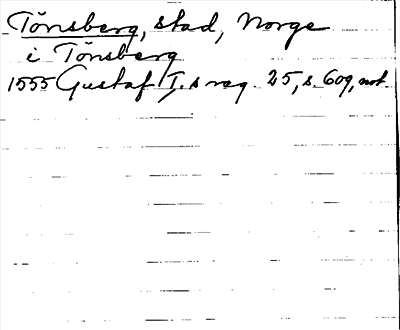 Tönsberg, stad, Norge
i Tönsberg
1555 Gustaf I.s reg. 25, s. 609, not.